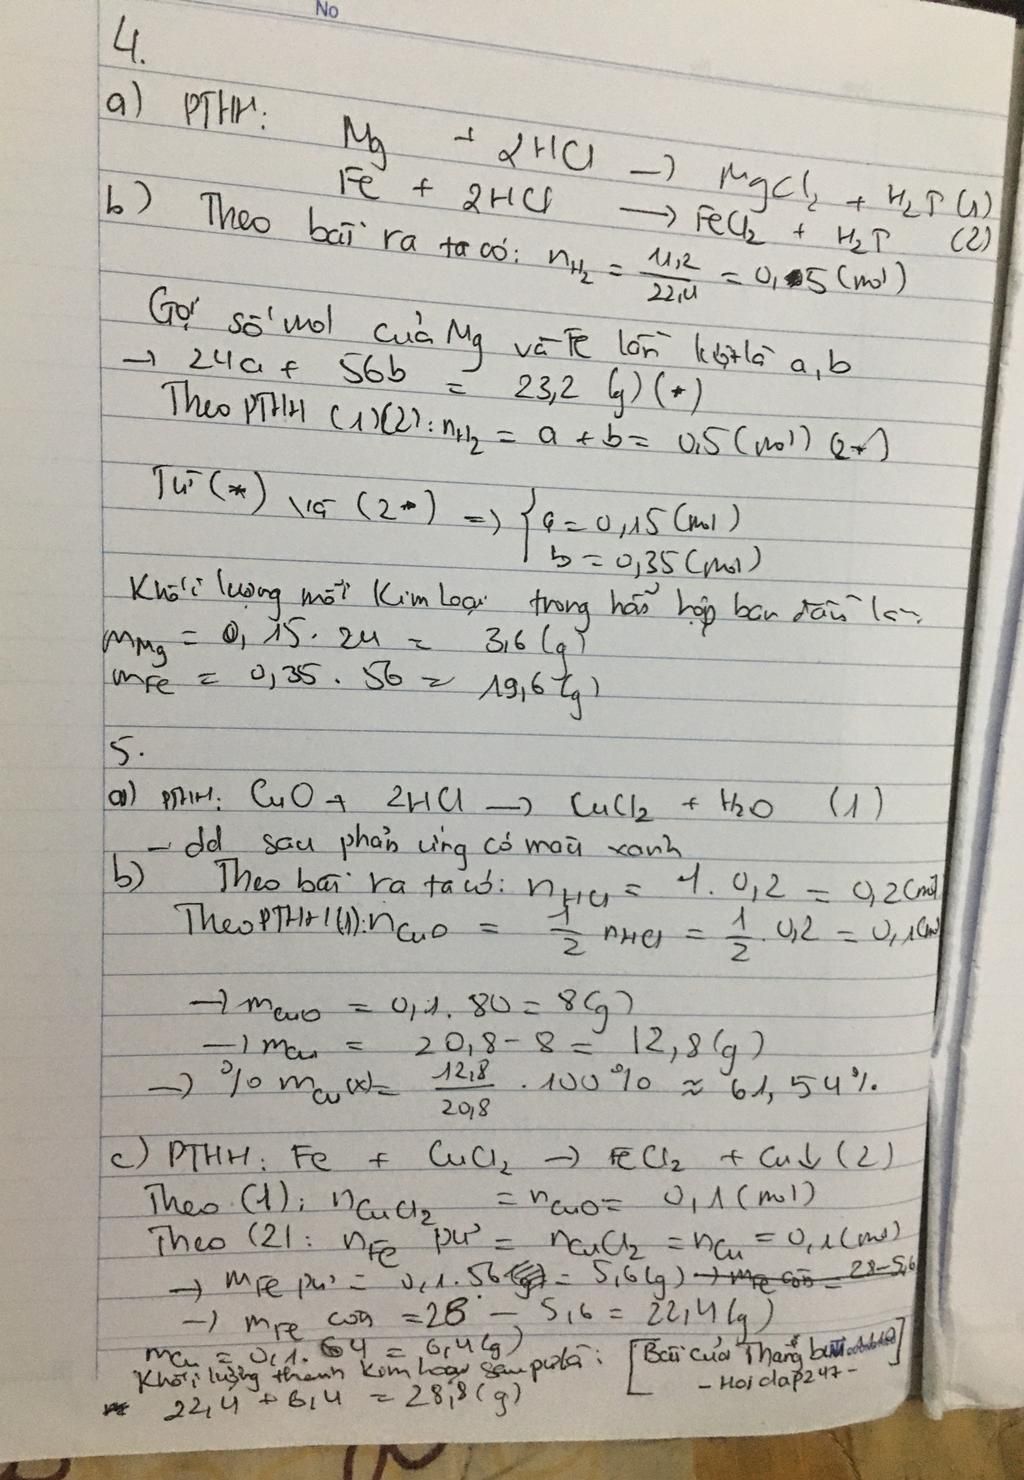 No
4.
a) PTHH: Mg + 2HCl → MgCl₂ + H₂↑ (1)
Fe + 2HCl → FeCl₂ + H₂↑ (2)
b) Theo bài ra ta có: nH₂ = 11,2/22,4 = 0,5 (mol)
Gọi số mol của Mg và Fe lần lượt là a, b
→ 24a + 56b = 23,2 (g) (*)
Theo PTHH (1)(2): nH₂ = a + b = 0,5 (mol) (2*)
Từ (*) và (2*) => { a = 0,15 (mol)
b = 0,35 (mol)
Khối lượng mỗi kim loại trong hỗn hợp ban đầu là:
mMg = 0,15 . 24 = 3,6 (g)
mFe = 0,35 . 56 = 19,6 (g)
5.
a) PTHH: CuO + 2HCl → CuCl₂ + H₂O (1)
- dd sau phản ứng có màu xanh
b) Theo bài ra ta có: nHCl = 1. 0,2 = 0,2 (mol)
Theo PTHH (1): nCuO = 1/2 nHCl = 1/2 . 0,2 = 0,1 (mol)
→ mCuO = 0,1. 80 = 8 (g)
→ mCu = 20,8 - 8 = 12,8 (g)
→ % mCu(X) = 12,8/20,8 . 100% ≈ 61,54%
c) PTHH: Fe + CuCl₂ → FeCl₂ + Cu↓ (2)
Theo (1): nCuCl₂ = nCuO = 0,1 (mol)
Theo (2): nFe pư = nCuCl₂ = nCu = 0,1 (mol)
→ mFe pư = 0,1. 56 = 5,6 (g) → mFe còn = 28-5,6
→ mFe còn = 28 - 5,6 = 22,4 (g)
mCu = 0,1. 64 = 6,4 (g)
Khối lượng thanh kim loại sau pư là: [Bài của Thắng
22,4 + 6,4 = 28,8 (g) - Hoidap247 -]